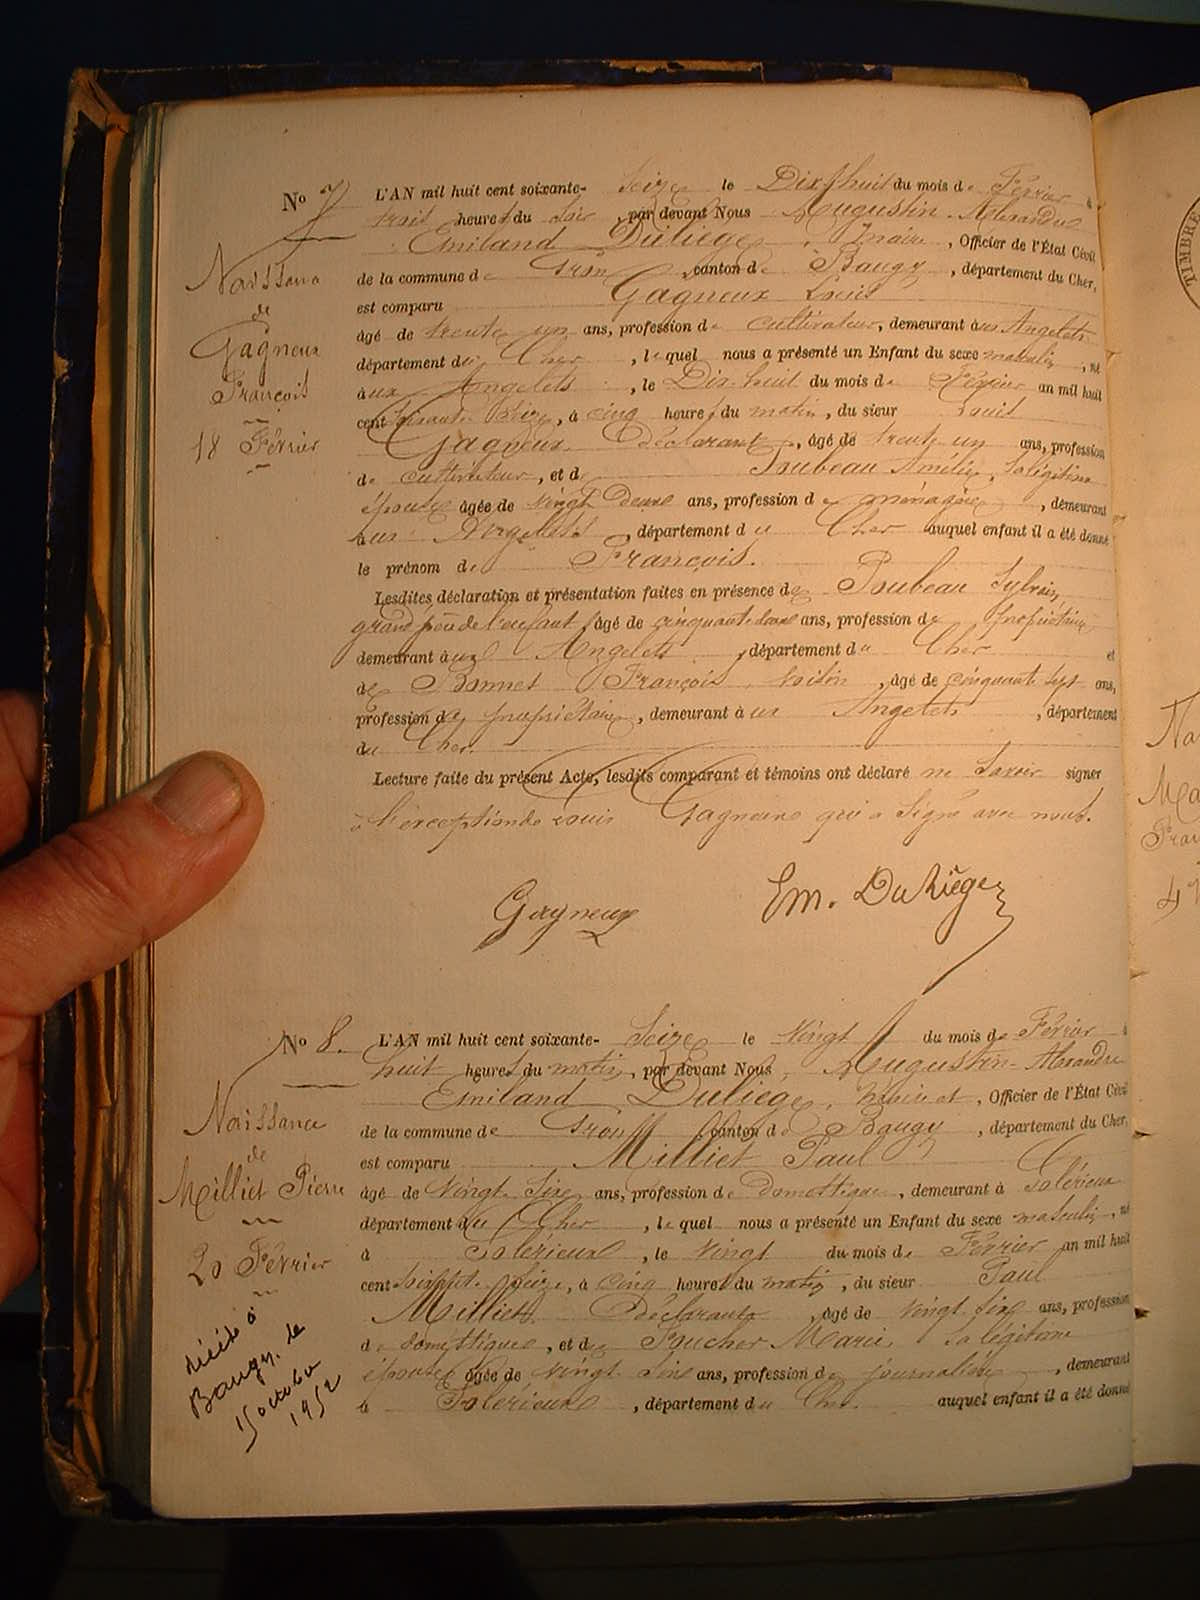 No 7
L'AN mil huit cent soixante- Seize le Dix huit du mois de Février à
trois heures du Soir, par devant Nous Augustin Alexandre
Emiland Duliège, Maire, Officier de l'État Civil
de la commune de Gron, canton de Baugy, département du Cher,
est comparu Gagneux Louis
âgé de trente un ans, profession de cultivateur, demeurant aux Angelets
département du Cher, lequel nous a présenté un Enfant du sexe masculin, né
aux Angelets, le Dix-huit du mois de Février an mil huit
cent soixante Seize, à cinq heures du matin, du sieur Louis
Gagneux Déclarant, âgé de trente un ans, profession
de cultivateur, et de Poubeau Amélie, Sa légitime
épouse âgée de vingt deux ans, profession de ménagère, demeurant
aux Angelets, département du Cher auquel enfant il a été donné
le prénom de François.
Lesdites déclaration et présentation faites en présence de Poubeau Sylvain,
grand père de l'enfant, âgé de cinquante deux ans, profession de propriétaire
demeurant aux Angelets, département du Cher et
de Bonnet François, voisin, âgé de cinquante sept ans,
profession de propriétaire, demeurant aux Angelets, département
du Cher.
Lecture faite du présent Acte, lesdits comparant et témoins ont déclaré ne Savoir signer
à l'exception de Louis Gagneux qui a Signé avec nous.
Gagneux
Em. Duliège
Naissance
de
Gagneux
François
18 Février
No 8.
L'AN mil huit cent soixante- Seize le Vingt du mois de Février à
huit heures du matin, par devant Nous, Augustin-Alexandre
Emiland Duliège, Maire et, Officier de l'État Civil
de la commune de Gron, canton de Baugy, département du Cher,
est comparu Milliet Paul
âgé de Vingt Six ans, profession de Domestique, demeurant à Solérieux
département du Cher, lequel nous a présenté un Enfant du sexe masculin, né
à Solérieux, le Vingt du mois de Février an mil huit
cent soixante Seize, à Cinq heures du matin, du sieur Paul
Milliet Déclarant, âgé de Vingt Six ans, profession
de domestique, et de Foucher Marie, Sa légitime
épouse âgée de Vingt Six ans, profession de journalière, demeurant
à Solérieux, département du Cher. auquel enfant il a été donné
Naissance
de
Milliet Pierre
20 Février
décédé à
Baugy. le
15 octobre
1952
TIMBRE